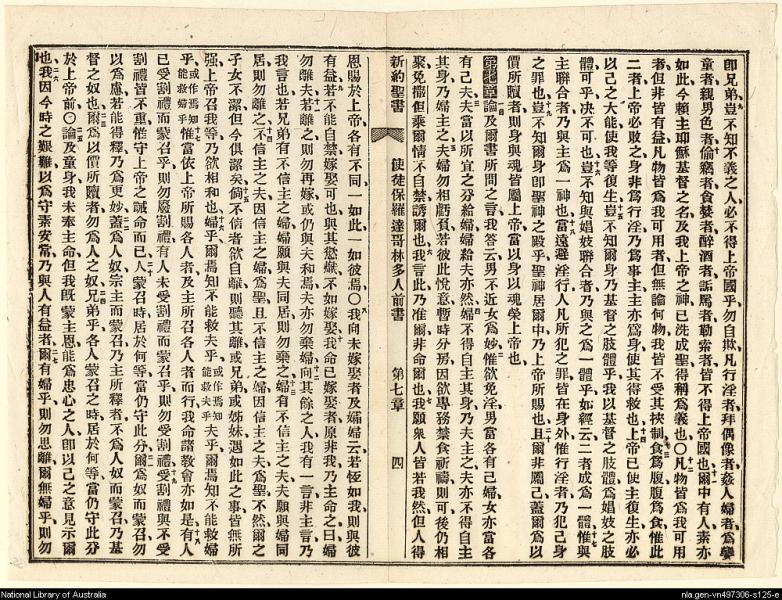 卽兄弟豈不知不義之人必不得上帝國乎勿自欺凡行淫者拜偶像者姦人婦者爲孌
童者親男色者偷竊者貪婪者醉酒者詬罵者勒索者皆不得上帝國也爾中有人素亦
如此今賴主耶穌基督之名及我上帝之神已洗成聖得稱爲義也〇凡物皆爲我可用
者但非皆有益凡物皆爲我可用者但無論何物我皆不受其挾制食爲腹腹爲食惟此
二者上帝必敗之身非爲行淫乃爲事主主亦爲身使其得救也上帝已使主復生亦必
以己之大能使我等復生豈不知爾身乃基督之肢體乎我以基督之肢體爲娼妓之肢
體可乎决不可也豈不知與娼妓聯合者乃與之爲一體乎如經云二者成爲一體惟與
主聯合者乃與主爲一神也當遠避淫行人凡所犯之罪皆在身外惟行淫者乃犯己身
之罪也豈不知爾身卽聖神之殿乎聖神居爾中乃上帝所賜也且爾非屬己蓋爾爲以
價所贖者則身與魂皆屬上帝當以身以魂榮上帝也
第七章論及爾書所問之言我答云男不近女爲妙惟欲免淫男當各有己婦女亦當各
有己夫夫當以所宜之分給婦婦給夫亦然婦不得自主其身乃夫主之夫亦不得自主
其身乃婦主之夫婦勿相虧負若彼此悅意暫時分房因欲專務禁食祈禱則可後仍相
聚免撒但乘爾情不自禁誘爾也我言此乃准爾非命爾也我願衆人皆若我然但人得
新約聖書 使徒保羅達哥林多人前書 第七章 四
恩賜於上帝各有不同一如此一如彼焉〇我向未嫁娶者及嫠婦云若恆如我則與彼
有益若不能自禁嫁娶可也與其慾燬不如嫁娶我命已嫁娶者原非我乃主命之曰婦
勿離夫若離之則勿再嫁或仍與夫和焉夫亦勿棄婦向其餘之人我有一言非主言乃
我言也若兄弟有不信主之婦婦願與夫同居則勿棄之婦有不信主之夫夫願與婦同
居則勿離之不信主之夫因信主之婦爲聖且不信主之婦因信主之夫爲聖不然爾之
子女不潔但今俱潔矣倘不信者欲自離則聽其離或兄弟或姊妹遇如此之事皆無所
强上帝召我等乃欲相和也婦乎爾焉知不能救夫乎或作焉知能救夫乎夫乎爾焉知不能救婦
乎或作焉知能救婦乎惟當依上帝所賜各人者及主所召各人者而行我命諸教會亦如是有人
已受割禮而蒙召乎則勿廢割禮有人未受割禮而蒙召乎則勿受割禮受割禮與不受
割禮皆不重惟守上帝之誡命而已人蒙召時居於何等當仍守此分爾爲奴而蒙召勿
以爲慮若能得釋乃爲更妙蓋爲人奴宗主而蒙召乃主所釋者不爲人奴而蒙召乃基
督之奴也爾爲以價所贖者勿爲人之奴兄弟乎各人蒙召之時居於何等當仍守此分
於上帝前〇論及童身我未奉主命但我旣蒙主恩能爲忠心之人卽以己之意見示爾
也我因今時之艱難以爲守素安常乃與人有益者爾有婦乎則勿思離爾無婦乎則勿
National Library of Australia
nla.gen-vn497306-s125-e